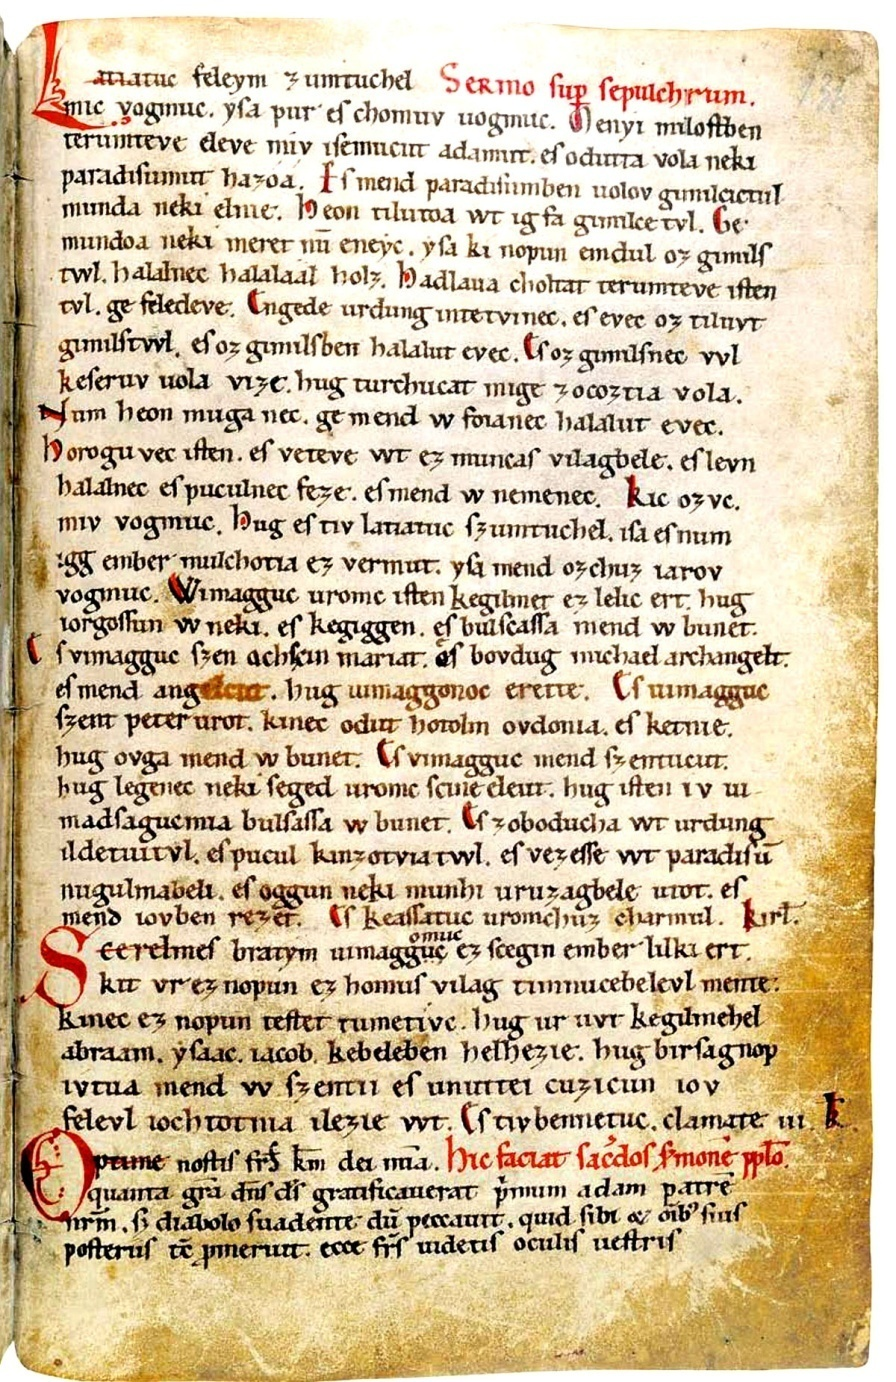 Latiatuc feleym zumtuchel Sermo sup sepulchrum.
mic vogmuc. ysa pur es chomuv uogmuc. Menyi milostben
terumteve eleve miv isemucut adamut. es odutta vola neki
paradisumut hazoa. Es mend paradisumben uolov gimilcictul
munda neki elnie. Heon tilutoa wt ig fa gimilce tvl. Ge
mundoa neki meret nū eneyc. ysa ki nopun emdul oz gimils
twl. halalnec halalaal holz. Hadlaua choltat terumteve isten
tvl. ge feledeve. Engede urdung intetvinec. es evec oz tiluvt
gimilstwl. es oz gimilsben halalut evec. Es oz gimilsnec vvl
keseruv uola vize. hug turchucat mige zocoztia vola.
Num heon muga nec. ge mend w foianec halalut evec.
Horogu vec isten. es veteve wt ez muncas vilagbele. es levn
halalnec es puculnec feze. es mend w nemenec. Kic ozvc.
miv vogmuc. Hug es tiv latiatuc szumtuchel. isa es num
igg ember mulchotia ez vermut. ysa mend ozchuz iarov
vogmuc. Wimagguc uromc isten kegilmet ez lelic ert. hug
iorgossun w neki. es kegiggen. es bulscassa mend w bunet.
Es vimagguc szen achscin mariat. es bovdug michael archangelt.
es mend angelcut. hug uimaggonoc erette. Es uimagguc
szent peter urot. kinec odut hotolm ovdonia. es ketnie.
hug ovga mend w bunet. Es vimagguc mend szentucut.
hug legenec neki seged uromc scine eleut. hug isten iv ui
madsagucmia bulsassa w bunet. Es zoboducha wt urdung
ildetuitvl. es pucul kinzotviatwl. es vezesse wt paradisū
nugulmabeli. es oggun neki munhi uruzagbele utot. es
mend iovben rezet. Es keassatuc uromchuz charmul. kirł.
Scerelmes bratym uimagg omuc ez scegin ember lilki ert.
kit vr ez nopun ez homus vilag timnucebelevl mente.
kinec ez nopun testet tumetivc. hug ur uvt kegilmehel
abraam. ysaac. iacob. kebeleben helhezie. hug birsagnop
ivtua mend w szentii es unuttei cuzicun iov
felevl iochtotnia ilezie wt. Es tiv bennetuc. clamate iii. k.
Optime nostis frs km dei mia. Hic faciat sacdos smone pplo.
quanta gra dns ds gratificauerat pmum adam patrē
nrm. s; diabolo suadente dū peccauit. quid sibi & oibꝰ suis
posteris tc pmeruit. ecce frs uidetis oculis uestris